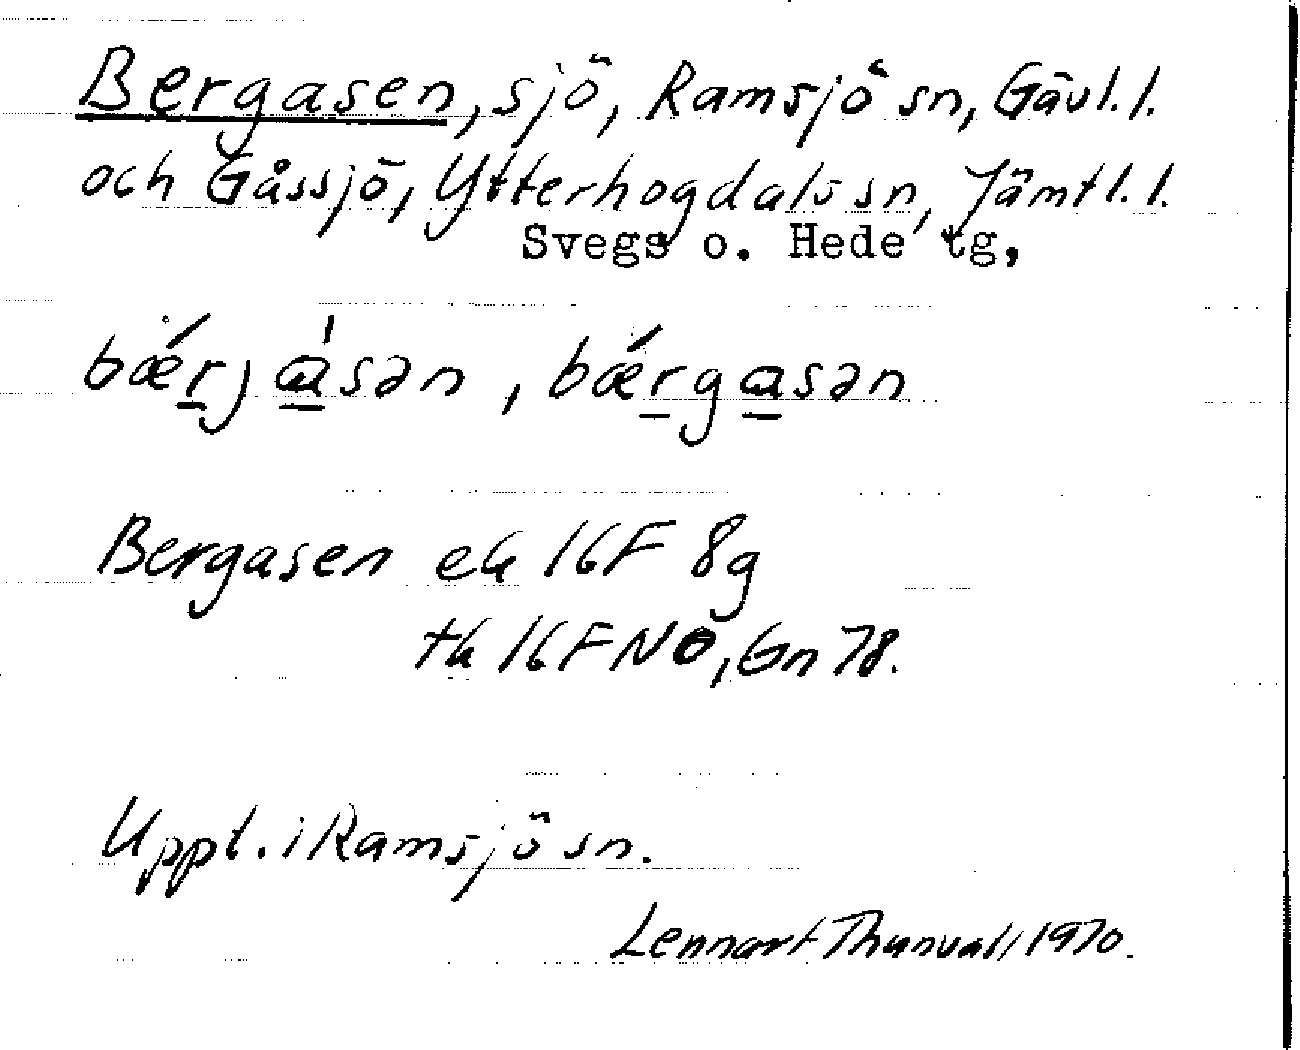 Bergasen, sjö, Ramsjö sn, Gävl. l.
och Gåssjö, Ytterhogdals sn, Jämtl. l.
Svegs o. Hede tg,
bǽrjàsən, bǽrgasən
Bergasen ek 16F 8g
tk 16F NO, Gn 78.
Uppt. i Ramsjö sn.
Lennart Thunvall 1970.